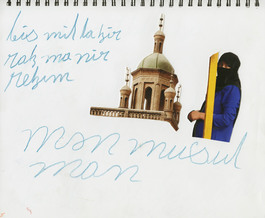 bis mil la hir
rah ma nir
rehim
man musul
man